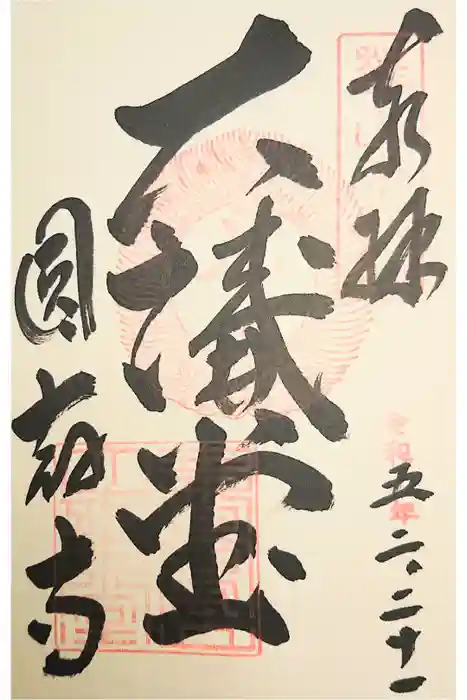 奉拝
令和五年二、二十一
大講堂
圓教寺